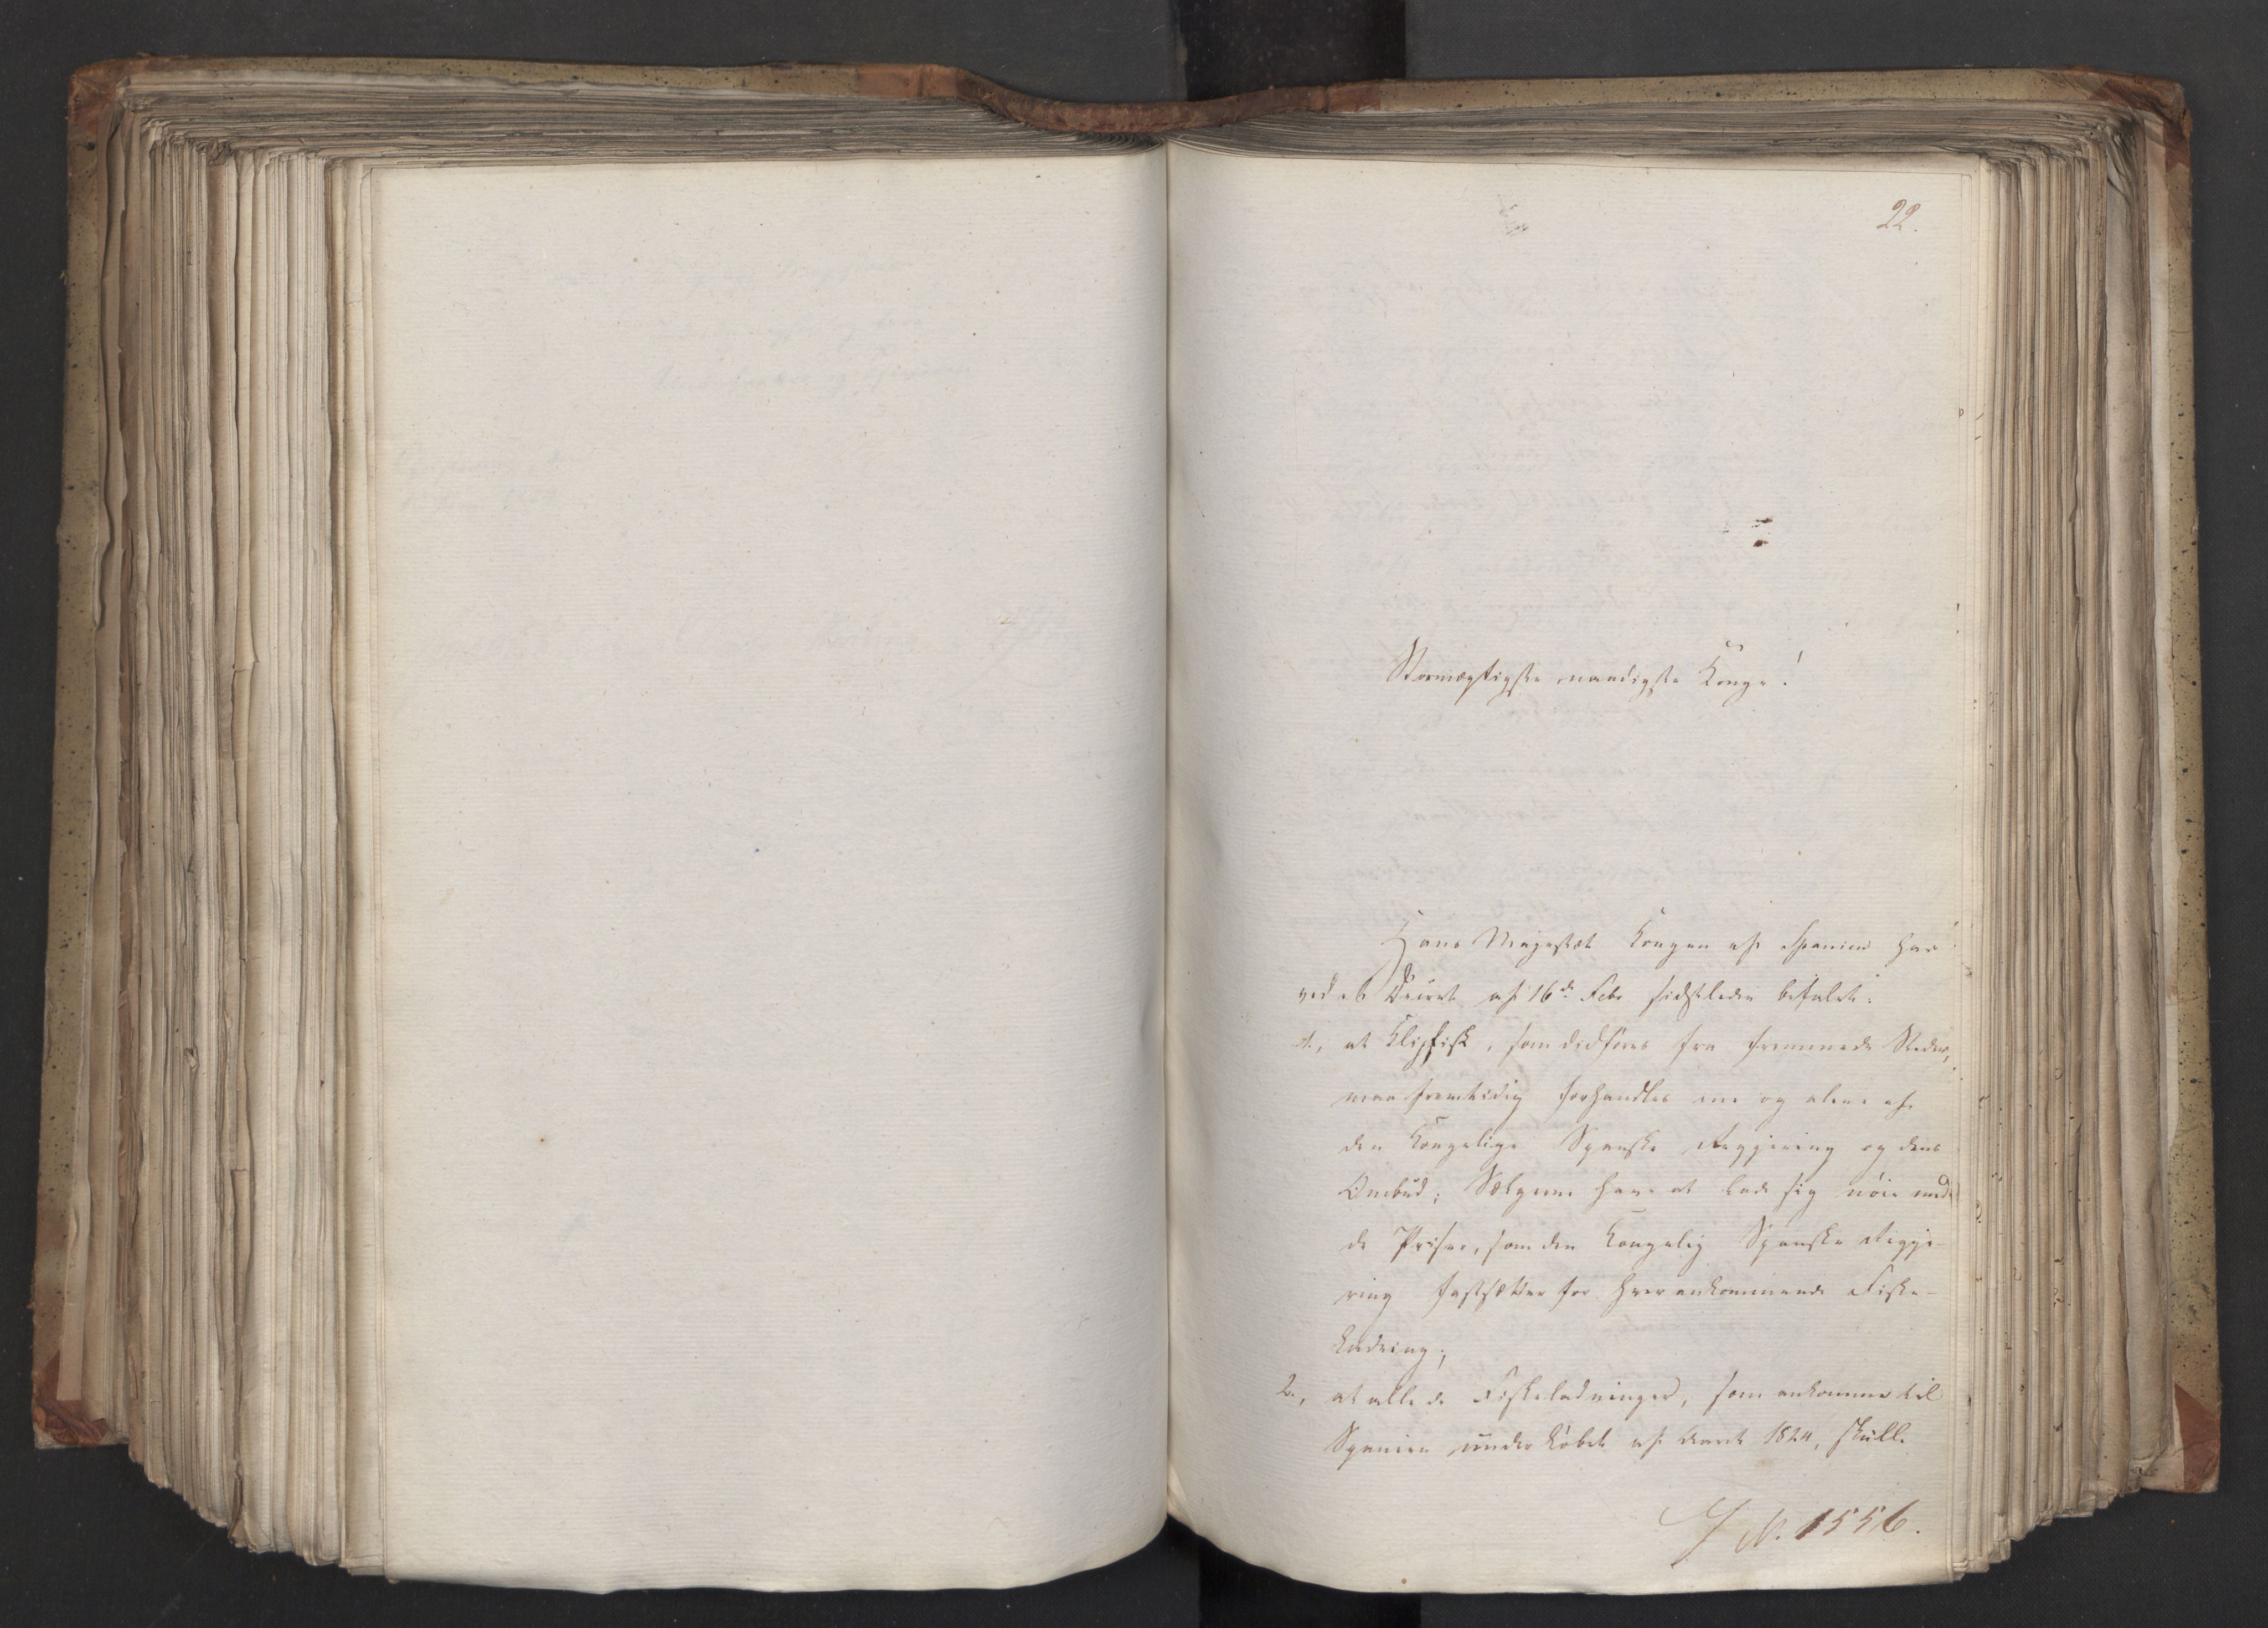 22.
Stormægtigste naadigste Konge!
Hans Majestæt Kongen af Spanien har
ved et Decret af 16de Febr sidstleden befalet:
1., at Klipfisk, som didføres fra fremmede Steder,
maa fremtidig forhandles ene og alene af
den Kongelige Spanske Regjering og dens
Ombud; Sælgerne have at lade sig nöie med
de Priser, som den Kongelig Spanske Regje-
ring fastsætter for hver ankommende Fiske-
Ladning;
2., at alle de Fiskeladninger, som ankomme til
Spanien under Løbet af Aaret 1824, skulle
J N. 1556.